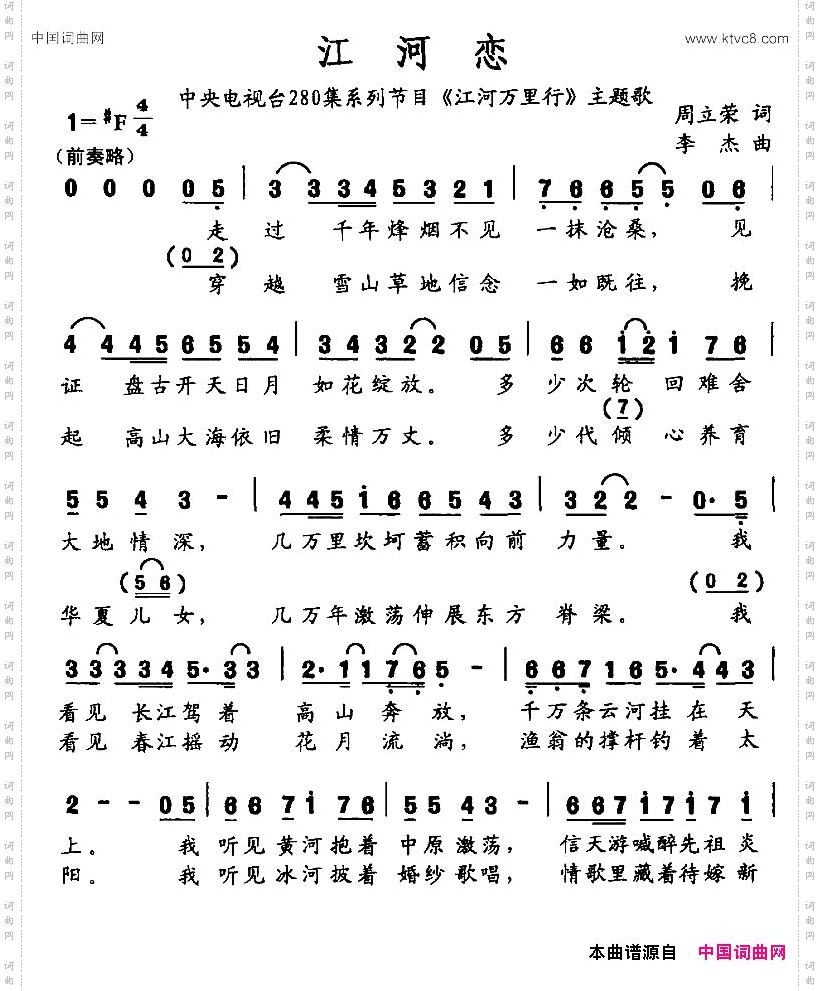 中国词曲网
www.ktvc8.com
江河恋
中央电视台280集系列节目《江河万里行》主题歌
1=#F 4/4
周立荣 词
李杰 曲
（前奏略）
0 0 0 0 5 | 3 3 3 4 5 3 2 1 | 7 6 6 5 5 0 6 |
走过 千年烽烟不见 一抹沧桑， 见
(0 2)
穿越 雪山草地信念 一如既往， 挽
4 4 4 5 6 5 5 4 | 3 4 3 2 2 0 5 | 6 6 1 2 1 7 6 |
证 盘古开天日月 如花绽放。 多 少次轮 回难舍
(7)
起 高山大海依旧 柔情万丈。 多 少代倾 心养育
5 5 4 3 - | 4 4 5 1 6 6 5 4 3 | 3 2 2 2 - 0· 5 |
大地情深， 几万里坎坷蓄积向前 力量。 我
(5 6) (0 2)
华夏儿女， 几万年激荡伸展东方 脊梁。 我
3 3 3 3 4 5· 3 3 | 2· 1 1 7 6 5 - | 6 6 7 1 6 5· 4 4 3 |
看见 长江驾着 高山奔放， 千万条云河挂在天
看见 春江摇动 花月流淌， 渔翁的撑杆钓着太
2 - - 0 5 | 6 6 7 1 7 6 | 5 5 4 3 - | 6 6 7 1 7 1 7 1 |
上。 我 听见黄河抱着 中原激荡， 信天游喊醉先祖炎
阳。 我 听见冰河披着 婚纱歌唱， 情歌里藏着待嫁新
本曲谱源自 中国词曲网